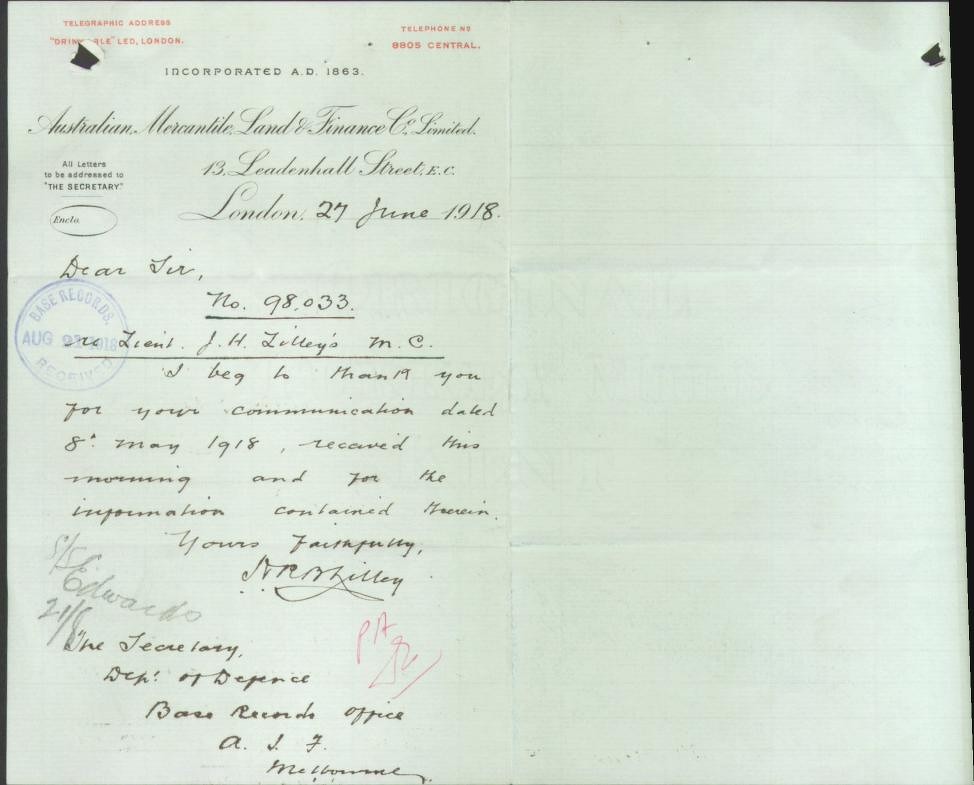 TELEGRAPHIC ADDRESS
LED, LONDON.
TELEPHONE NO
8805 CENTRAL.
INCORPORATED A.D. 1863.
Australian Mercantile Land & Finance Co. Limited.
All Letters
to be addressed to
"THE SECRETARY."
Enclo.
13, Leadenhall Street, E.C.
London, 27 June 1918.
Dear Sir,
No. 98.033.
BASE RECORDS.
AUG 21 1918
RECEIVED
re Lieut. J. H. Lilley's M. C.
I beg to thank you
for your communication dated
8th May 1918, received this
morning and for the
information contained therein.
Yours faithfully,
Lilley
Edwards
21/8
The Secretary,
Dept. of Defence
Base Records Office
A. I. F.
Melbourne
PA